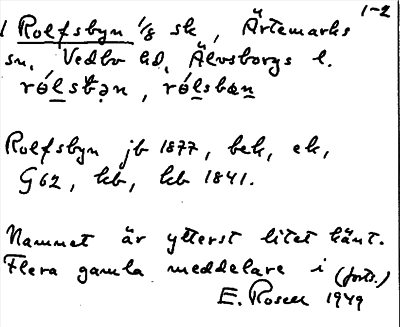 1-2
1 Rolfsbyn 1/8 sk, Ärtemarks
sn, Vedbo hd, Älvsborgs l.
rólsbən, rólsbæn
Rolfsbyn jb 1877, bek, ek,
G62, hb, kb 1841.
Namnet är ytterst litet känt.
Flera gamla meddelare i (forts.)
E. Rosell 1949